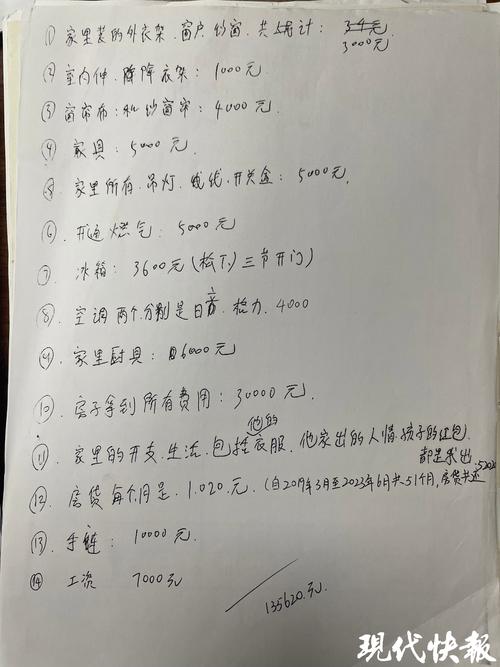 ① 家里装的外衣架.窗户纱窗.共统计: 3000元
② 室内伸.降降衣架: 1000元
③ 窗帘布:和纱窗帘: 4000元
④ 家具: 5000元.
⑤. 家里所有.吊灯.线线.开关盒: 5000元.
⑥. 开通燃气: 5000元
⑦. 冰箱: 3600元(松下)三节开门)
⑧. 空调两个.分别是日立.格力. 4000
⑨. 家里厨具: 6000元
⑩. 房子拿到所有费用: 30000元.
⑪. 家里的开支.生活.包括他的衣服.他家出的人情.孩子的红包.都是我出
⑫. 房货每个月是.1.020.元.(自2019年3月至2023年6月共51个月,房货共还52020
⑬. 手链: 10000元.
⑭ 工资 7000元
135620.元.
现代快报